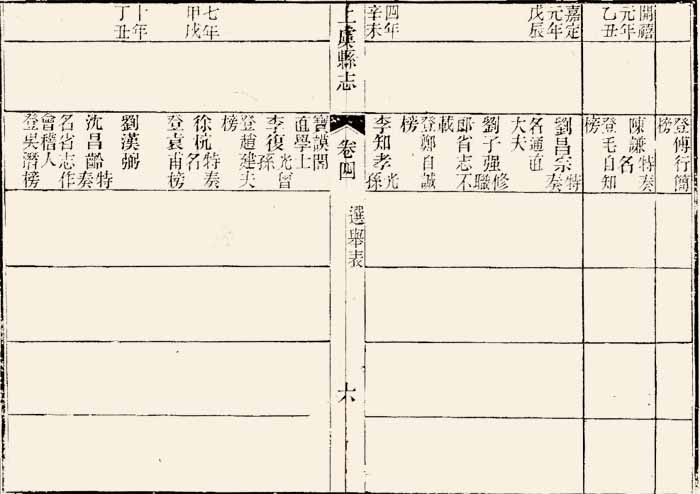 登傅行簡
榜
開禧
元年
乙丑
陳謙特奏
名
登毛自知
榜
嘉定
元年
戊辰
劉昌宗特奏
名通直
大夫
劉子强修職
郎省志不
載
登鄭自誠
榜
四年
辛未
李知孝光孫
上虞縣志
卷四
選舉表
六
寶謨閣
直學士
李復光曾孫
登趙建夫
榜
七年
甲戌
徐杬特奏
名
登袁甫榜
十年
丁丑
劉漢弼
沈昌齡特奏
名省志作
會稽人
登吳潛榜